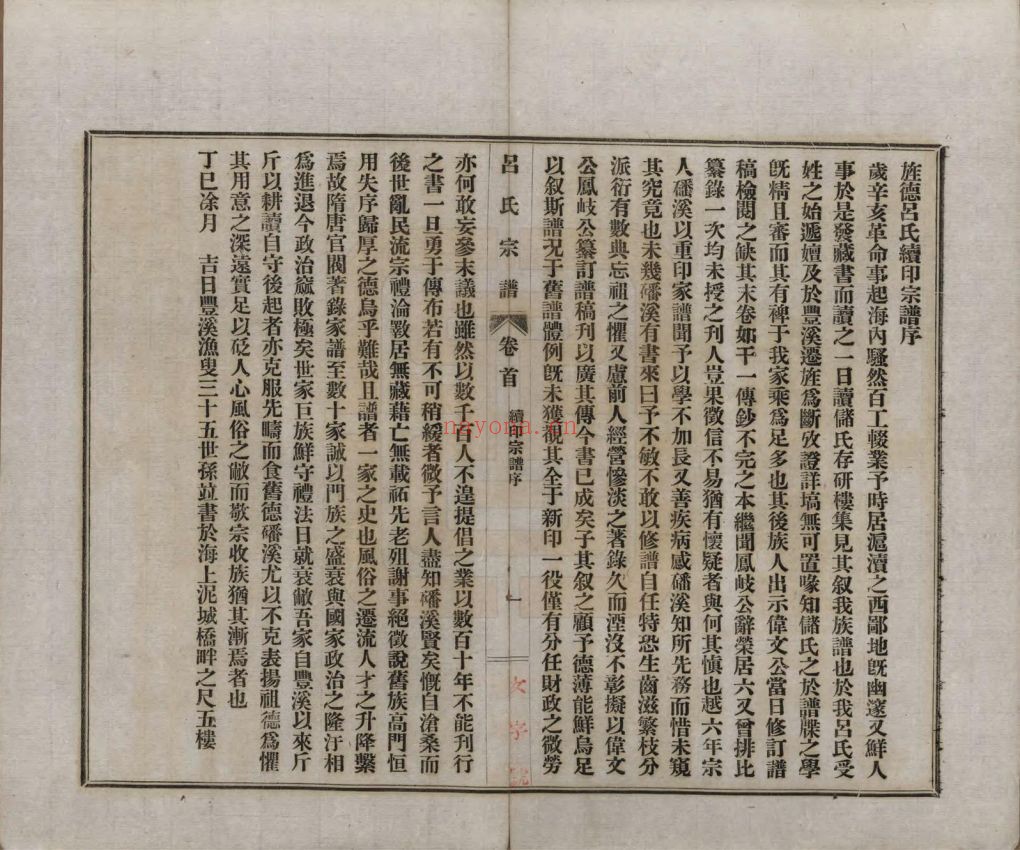 旌德呂氏續印宗譜序
歲辛亥革命事起海內騷然百工輟業予時居滬瀆之西鄙地旣幽邃又鮮人
事於是發藏書而讀之一日讀儲氏存研樓集見其叙我族譜也於我呂氏受
姓之始遞嬗及於豐溪遷旌爲斷攷證詳塙無可置喙知儲氏之於譜牒之學
旣精且審而其有裨于我家乘爲足多也其後族人出示偉文公當日修訂譜
稿檢閱之缺其末卷如干一傳鈔不完之本繼聞鳳岐公辭榮居六又曾排比
纂錄一次均未授之刋人豈果徵信不易猶有懷疑者與何其愼也越六年宗
人磻溪以重印家譜聞予以學不加長又善疾病感磻溪知所先務而惜未窺
其究竟也未幾磻溪有書來曰予不敏不敢以修譜自任特恐生齒滋繁枝分
派衍有數典忘祖之懼又慮前人經營慘淡之著錄久而湮沒不彰擬以偉文
公鳳岐公纂訂譜稿刋以廣其傳今書已成矣子其叙之顧予德薄能鮮烏足
以叙斯譜况于舊譜體例旣未獲覩其全于新印一役僅有分任財政之微勞
呂氏宗譜 卷首 續印宗譜序 一
亦何敢妄參末議也雖然以數千百人不遑提倡之業以數百十年不能刋行
之書一旦勇于傳布若有不可稍緩者微予言人盡知磻溪賢矣慨自滄桑而
後世亂民流宗禮淪斁居無藏藉亡無載祏先老殂謝事絕徵說舊族高門恒
用失序歸厚之德烏乎難哉且譜者一家之史也風俗之遷流人才之升降繫
焉故隋唐官閥著錄家譜至數十家誠以門族之盛衰與國家政治之隆汙相
爲進退今政治窳敗極矣世家巨族鮮守禮法日就衰敝吾家自豐溪以來斤
斤以耕讀自守後起者亦克服先疇而食舊德磻溪尤以不克表揚祖德爲懼
其用意之深遠實足以砭人心風俗之敝而敬宗收族猶其漸焉者也
丁巳凃月 吉日豐溪漁叟三十五世孫竝書於海上泥城橋畔之尺五樓
nayona.cn